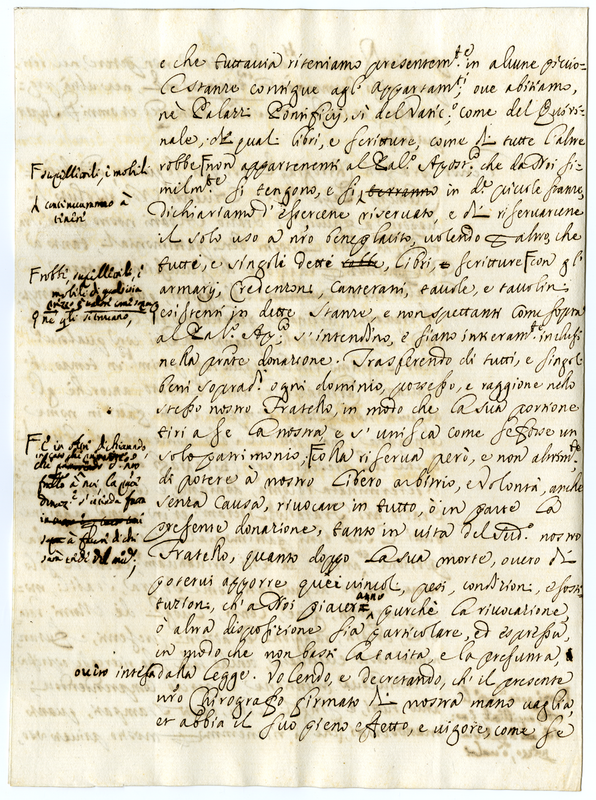 e che tuttavia riteniamo presentem.te in alcune piccio-
le stanze contigue agl' appartam.ti, ove abitiamo,
nè Palazzi Pontificij, sì del Vatic.o come del Quiri-
nale, quali libri, e scritture, come di tutte l'altre
robbe non appartenenti al Pal.o Apost.co, che da Noi si-
milm.te si tengono, e si terranno in d.e piccole stanze,
dichiariamo d'essercene riservato, e di riservarcene
il solo uso a nr̃o beneplacito, volendo altro, che
tutte, e singole dette robbe, libri, e scritture con gl'
armarij, Credenzoni, Canterani, tavole, e tavolini
esistenti in dette stanze, e non spettanti come sopra
al Pal.o Ap.co s'intendino, e siano interam.te inclusi
nella pñte donazione. Trasferendo di tutti, e singoli
beni soprad.i ogni dominio, possesso, e raggione nello
stesso nostro Fratello, in modo che la sua portione
tiri a se la nostra e s'unisca come se fosse un
solo patrimonio, colla riserva però, e non altrim.te
di potere à nostro libero arbitrio, e volontà, anche
senza causa, rivocare in tutto, ò in parte la
presente donazione, tanto in vita del sud.o nostro
Fratello, quanto doppo la sua morte, overo di
potervi apporre quei vincoli, pesi, condizioni, e sosti-
tuzioni, ch'a Noi piaceranno, purchè la rivocazione,
ò altra disposizione sia particolare, ed espressa,
in modo che non basti la tacita, e la presunta,
overo intesa dalla legge. Volendo, e decretando, ch'il presente
nr̃o Chirografo firmato di nostra mano vaglia,
et abbia il suo pieno effetto, e vigore, come se
suppellettili, i mobili
continueranno à
tenere
robbe, suppellettili, i
mobili di qualsisia
si trovano,
E in oltre dichiarando,
frutto à noi la pñte
à favore di chi
sarà erede del med.o;